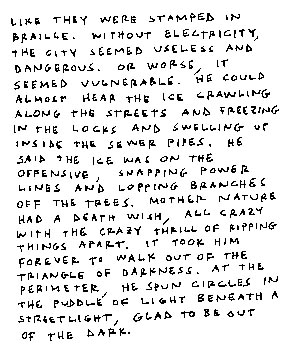 LIKE THEY WERE STAMPED IN
BRAILLE. WITHOUT ELECTRICITY,
THE CITY SEEMED USELESS AND
DANGEROUS. OR WORSE, IT
SEEMED VULNERABLE. HE COULD
ALMOST HEAR THE ICE CRAWLING
ALONG THE STREETS AND FREEZING
IN THE LOCKS AND SWELLING UP
INSIDE THE SEWER PIPES. HE
SAID THE ICE WAS ON THE
OFFENSIVE, SNAPPING POWER
LINES AND LOPPING BRANCHES
OFF THE TREES. MOTHER NATURE
HAD A DEATH WISH, ALL CRAZY
WITH THE CRAZY THRILL OF RIPPING
THINGS APART. IT TOOK HIM
FOREVER TO WALK OUT OF THE
TRIANGLE OF DARKNESS. AT THE
PERIMETER, HE SPUN CIRCLES IN
THE PUDDLE OF LIGHT BENEATH A
STREETLIGHT, GLAD TO BE OUT
OF THE DARK.